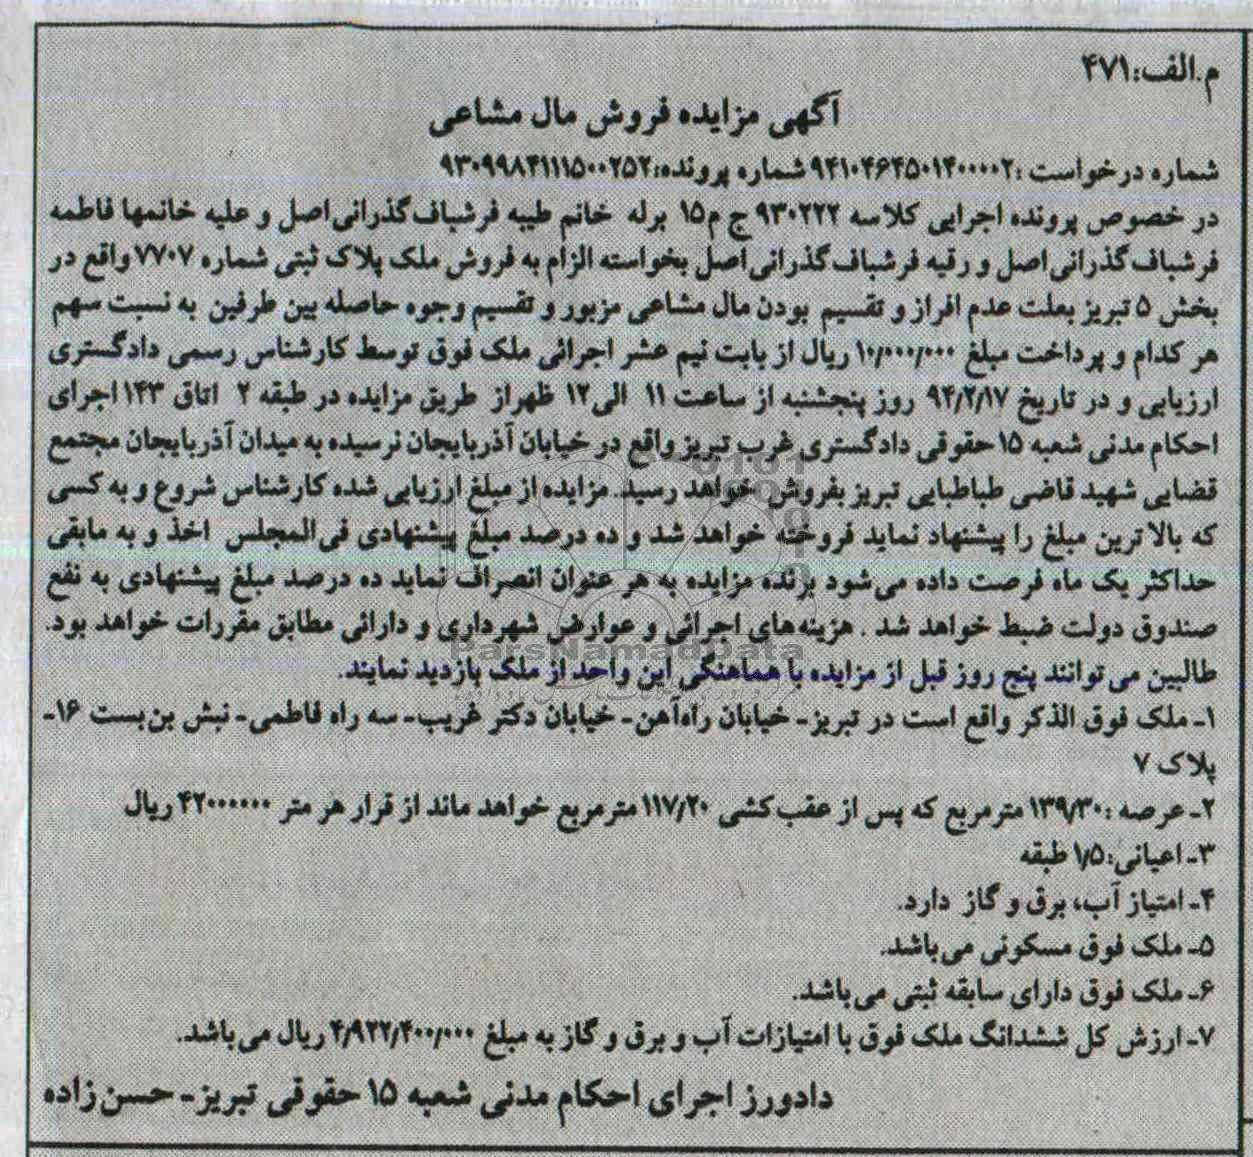 م.الف:۴۷۱
آگهی مزایده فروش مال مشاعی
شماره درخواست :۹۴۱۰۴۶۴۵۰۱۴۰۰۰۰۲ شماره پرونده:۹۳۰۹۹۸۴۱۱۱۵۰۰۲۵۲
در خصوص پرونده اجرایی کلاسه ۹۳۰۲۲۲ ج م۱۵ برله خانم طیبه فرشباف‌گذرانی‌اصل و علیه خانمها فاطمه
فرشباف‌گذرانی‌اصل و رقیه فرشباف‌گذرانی‌اصل بخواسته الزام به فروش ملک پلاک ثبتی شماره ۷۷۰۷ واقع در
بخش ۵ تبریز بعلت عدم افراز و تقسیم بودن مال مشاعی مزبور و تقسیم وجوه حاصله بین طرفین به نسبت سهم
هر کدام و پرداخت مبلغ ۱۰/۰۰۰/۰۰۰ ریال از بابت نیم عشر اجرائی ملک فوق توسط کارشناس رسمی دادگستری
ارزیابی و در تاریخ ۹۴/۲/۱۷ روز پنجشنبه از ساعت ۱۱ الی۱۲ ظهراز طریق مزایده در طبقه ۲ اتاق ۱۴۳ اجرای
احکام مدنی شعبه ۱۵ حقوقی دادگستری غرب تبریز واقع در خیابان آذربایجان نرسیده به میدان آذربایجان مجتمع
قضایی شهید قاضی طباطبایی تبریز بفروش خواهد رسید. مزایده از مبلغ ارزیابی شده کارشناس شروع و به کسی
که بالاترین مبلغ را پیشنهاد نماید فروخته خواهد شد و ده درصد مبلغ پیشنهادی فی‌المجلس اخذ و به مابقی
حداکثر یک ماه فرصت داده می‌شود برنده مزایده به هر عنوان انصراف نماید ده درصد مبلغ پیشنهادی به نفع
صندوق دولت ضبط خواهد شد . هزینه‌های اجرائی و عوارض شهرداری و دارائی مطابق مقررات خواهد بود.
طالبین می‌توانند پنج روز قبل از مزایده با هماهنگی این واحد از ملک بازدید نمایند.
۱ـ ملک فوق الذکر واقع است در تبریز- خیابان راه‌آهن- خیابان دکتر غریب- سه راه فاطمی- نبش بن‌بست ۱۶-
پلاک ۷
۲ـ عرصه :۱۳۹/۳۰ مترمربع که پس از عقب‌کشی ۱۱۷/۲۰ مترمربع خواهد ماند از قرار هر متر ۴۲۰۰۰۰۰۰ ریال
۳ـ اعیانی:۱/۵ طبقه
۴ـ امتیاز آب، برق و گاز دارد.
۵ـ ملک فوق مسکونی می‌باشد.
۶ـ ملک فوق دارای سابقه ثبتی می‌باشد.
۷ـ ارزش کل ششدانگ ملک فوق با امتیازات آب و برق و گاز به مبلغ ۴/۹۲۲/۴۰۰/۰۰۰ ریال می‌باشد.
دادورز اجرای احکام مدنی شعبه ۱۵ حقوقی تبریز- حسن‌زاده
ParsNamadData